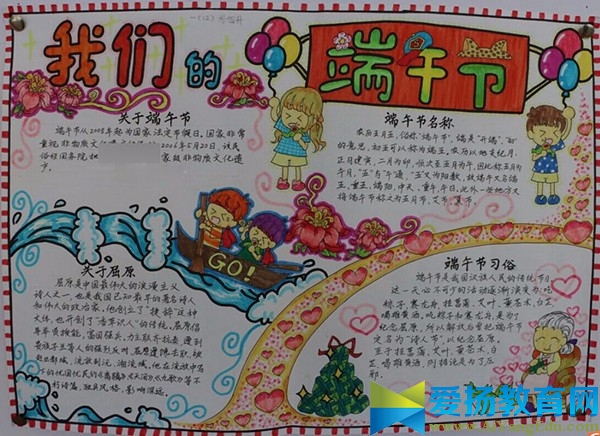 我们的
端午节
关于端午节
端午节从2008年起为国家法定节假日。国家非常
重视非物质文化
2006年5月20日,该民
俗经国务院批
家级非物质文化遗
产。
端午节名称
农历五月五,俗称"端午节",端是"开端"、"初"
的意思。初五可以称为端五。农历以地支纪月,
正月建寅,二月为卯,依次至五月为午,因此称五月为
午月,"五"与"午"通,"五"又为阳数,故端午又名端
五、重五、端阳、中天、重午、午日,此外一些地方又
将端午节称之为五月节、艾节、夏节。
GO!
关于屈原
屈原是中国最伟大的浪漫主义
诗人之一,也是我国已知最早的著名诗人
和伟大的政治家。他创立了"楚辞"这种
文体,也开创了"香草美人"的传统。
端午节习俗
端午节是我国汉族人民的传统节日
这一天必不可少的活动逐渐演变为吃
粽子,赛龙舟,挂菖蒲、艾叶,薰苍术、白芷
,喝雄黄酒。吃粽子和赛龙舟,是为了
纪念屈原,所以解放后曾把端午节
定名为"诗人节",以纪念屈原。
至于挂菖蒲、艾叶,薰苍术、白
芷,喝雄黄酒,则据说是为了压
邪。
爱扬教育网